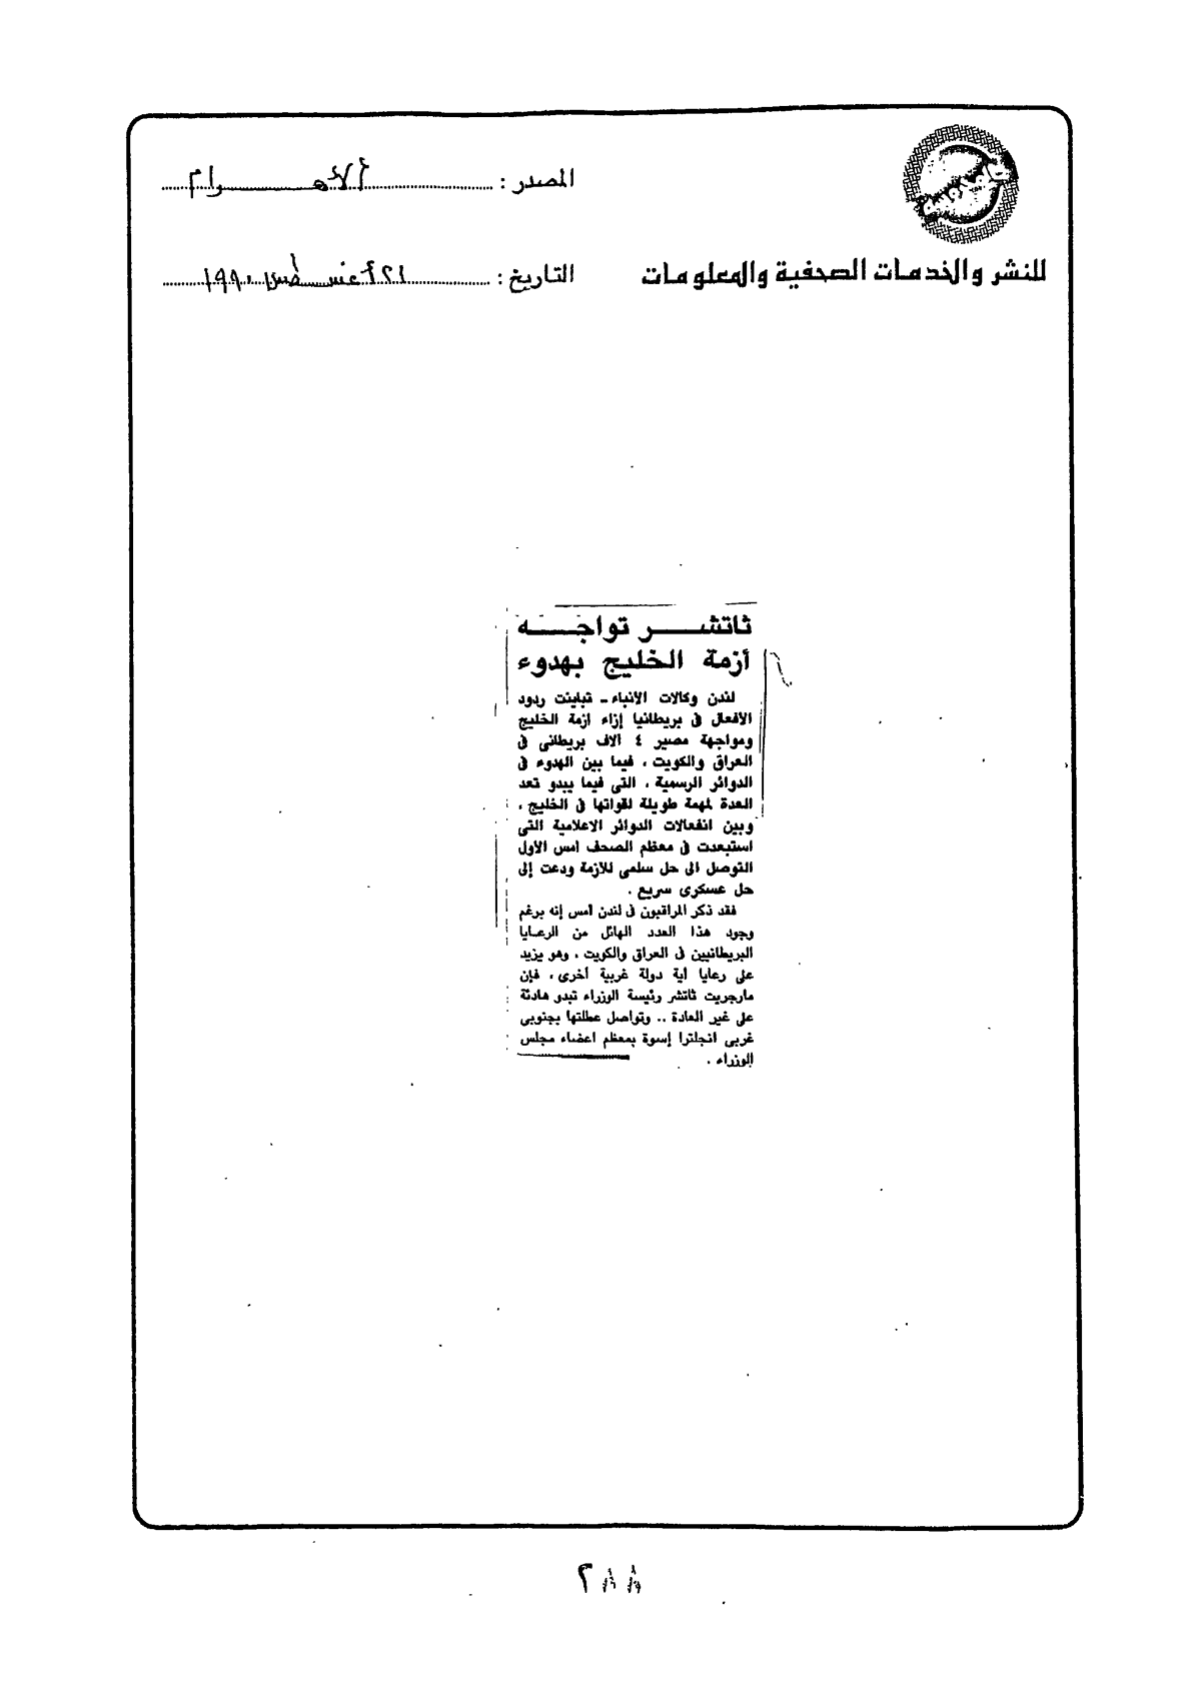 المصدر : الأهرام
للنشر والخدمات الصحفية والمعلومات
التاريخ : ٢١ أغسطس ١٩٩٠
ثاتشر تواجه
أزمة الخليج بهدوء
لندن وكالات الأنباء ـ تباينت ردود
الأفعال فى بريطانيا إزاء أزمة الخليج
ومواجهة مصير ٤ آلاف بريطانى فى
العراق والكويت ، فيما بين الهدوء فى
الدوائر الرسمية ، التى فيما يبدو تعد
العدة لمهمة طويلة لقواتها فى الخليج ،
وبين انفعالات الدوائر الاعلامية التى
استبعدت فى معظم الصحف أمس الأول
التوصل الى حل سلمى للازمة ودعت إلى
حل عسكرى سريع .
فقد ذكر المراقبون فى لندن أمس إنه برغم
وجود هذا العدد الهائل من الرعايا
البريطانيين فى العراق والكويت ، وهو يزيد
على رعايا أية دولة غربية أخرى ، فإن
مارجريت ثاتشر رئيسة الوزراء تبدو هادئة
على غير العادة .. وتواصل عطلتها بجنوبى
غربى انجلترا إسوة بمعظم اعضاء مجلس
الوزراء .
٢٨٨